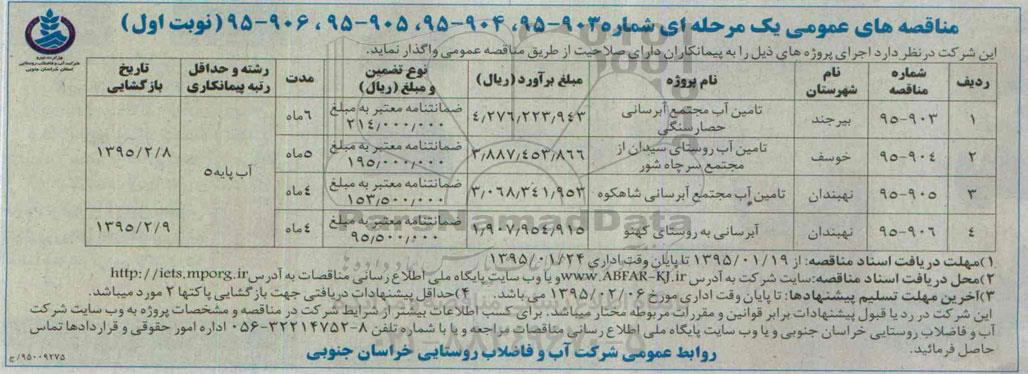 مناقصه های عمومی یک مرحله ای شماره ۹۰۳-۹۵، ۹۰۴-۹۵، ۹۰۵-۹۵، ۹۰۶-۹۵ (نوبت اول)
وزارت نیرو
شرکت آب و فاضلاب روستایی
استان خراسان جنوبی
این شرکت در نظر دارد اجرای پروژه های ذیل را به پیمانکاران دارای صلاحیت از طریق مناقصه عمومی واگذار نماید.
ردیف شماره مناقصه نام شهرستان نام پروژه مبلغ برآورد (ریال) نوع تضمین و مبلغ (ریال) مدت رشته و حداقل رتبه پیمانکاری تاریخ بازگشایی
۱ ۹۵-۹۰۳ بیرجند تامین آب مجتمع آبرسانی حصارسنگی ۴٫۲۷۶٫۲۲۳٫۹۴۳ ضمانتنامه معتبر به مبلغ ۲۱۴٫۰۰۰٫۰۰۰ ۶ماه آب پایه۵ ۱۳۹۵/۲/۸
۲ ۹۵-۹۰۴ خوسف تامین آب روستای سیدان از مجتمع سرچاه شور ۳٫۸۸۷٫۴۵۳٫۸۶۶ ضمانتنامه معتبر به مبلغ ۱۹۵٫۰۰۰٫۰۰۰ ۵ماه
۳ ۹۵-۹۰۵ نهبندان تامین آب مجتمع آبرسانی شاهکوه ۳٫۰۶۸٫۳۴۱٫۹۵۳ ضمانتنامه معتبر به مبلغ ۱۵۳٫۵۰۰٫۰۰۰ ۴ماه
۴ ۹۵-۹۰۶ نهبندان آبرسانی به روستای کهنو ۱٫۹۰۷٫۹۵۴٫۹۱۵ ضمانتنامه معتبر به مبلغ ۹۵٫۵۰۰٫۰۰۰ ۴ماه ۱۳۹۵/۲/۹
۱)مهلت دریافت اسناد مناقصه: از ۱۳۹۵/۰۱/۱۹ تا پایان وقت اداری ۱۳۹۵/۰۱/۲۴
۲)محل دریافت اسناد مناقصه: سایت شرکت به آدرس www.ABFAR-KJ.ir و یا وب سایت پایگاه ملی اطلاع رسانی مناقصات به آدرس http://iets.mporg.ir
۳)آخرین مهلت تسلیم پیشنهادها: تا پایان وقت اداری مورخ ۱۳۹۵/۰۲/۰۶ می باشد. ۴)حداقل پیشنهادات دریافتی جهت بازگشایی پاکتها ۲ مورد میباشد.
این شرکت در رد یا قبول پیشنهادات برابر قوانین و مقررات مربوطه مختار میباشد. برای کسب اطلاعات بیشتر از شرایط شرکت در مناقصه و مشخصات پروژه به وب سایت شرکت
آب و فاضلاب روستایی خراسان جنوبی و یا وب سایت پایگاه ملی اطلاع رسانی مناقصات مراجعه و یا با شماره تلفن ۸-۳۲۲۱۴۷۵۲-۰۵۶ اداره امور حقوقی و قراردادها تماس
حاصل فرمائید.
روابط عمومی شرکت آب و فاضلاب روستایی خراسان جنوبی
۹۵۰۰۹۲۷۵/ج
ParsNamadData